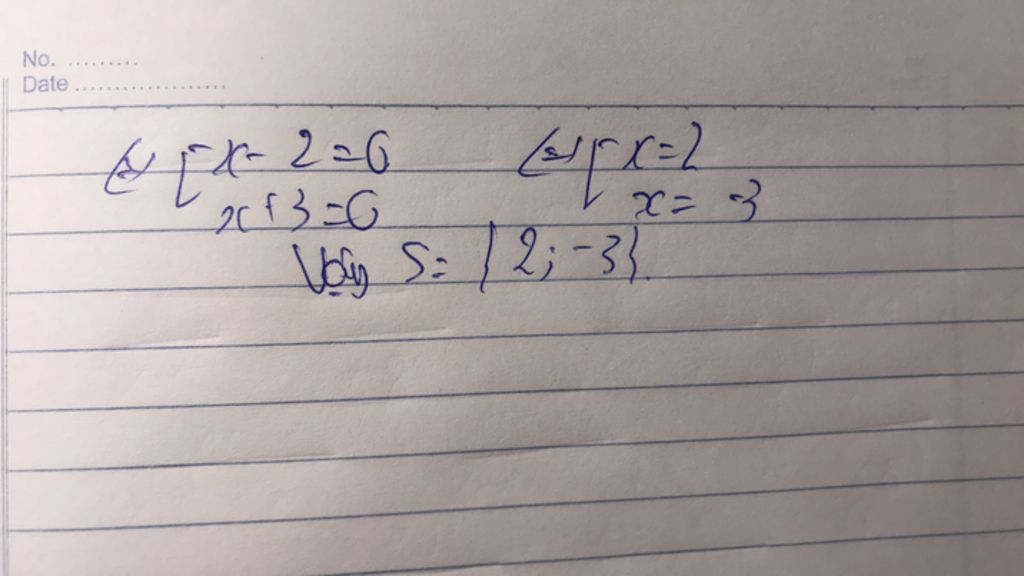 No. .........
Date ...................
⇔ [ x - 2 = 0 ⇔ [ x = 2
x + 3 = 0 x = -3
Vậy S = { 2; -3}.